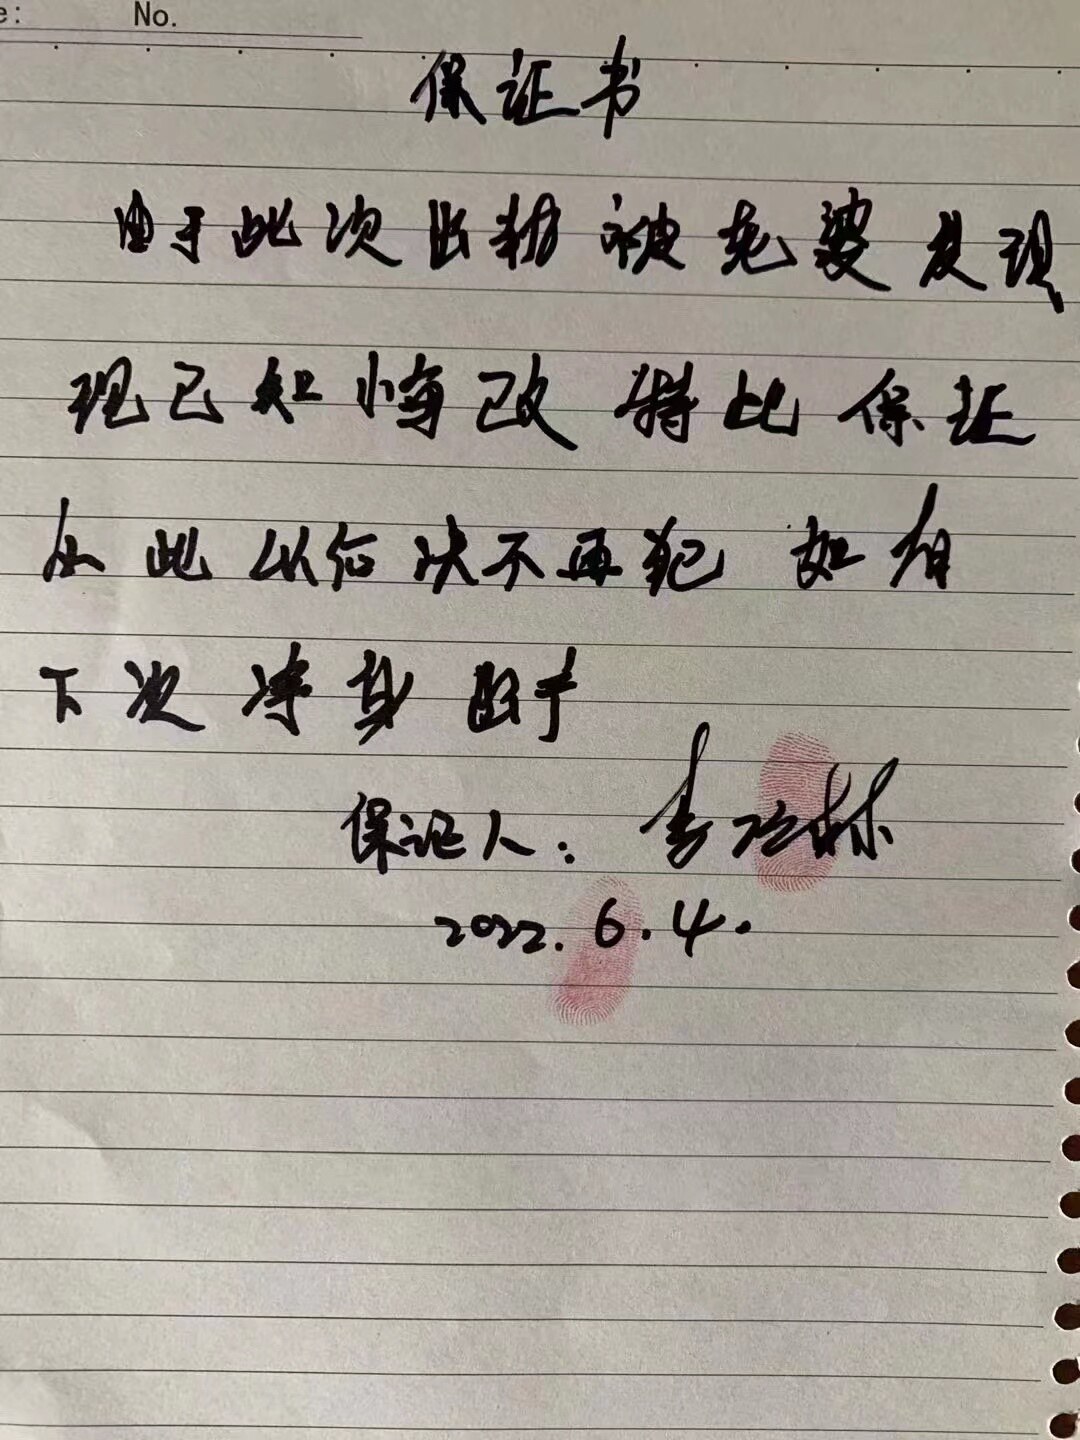 e: No.
保证书
由于此次出轨被老婆发现
现已知悔改 特此保证
从此以后决不再犯 如有
下次净身出户
保证人：李 林
2022.6.4.